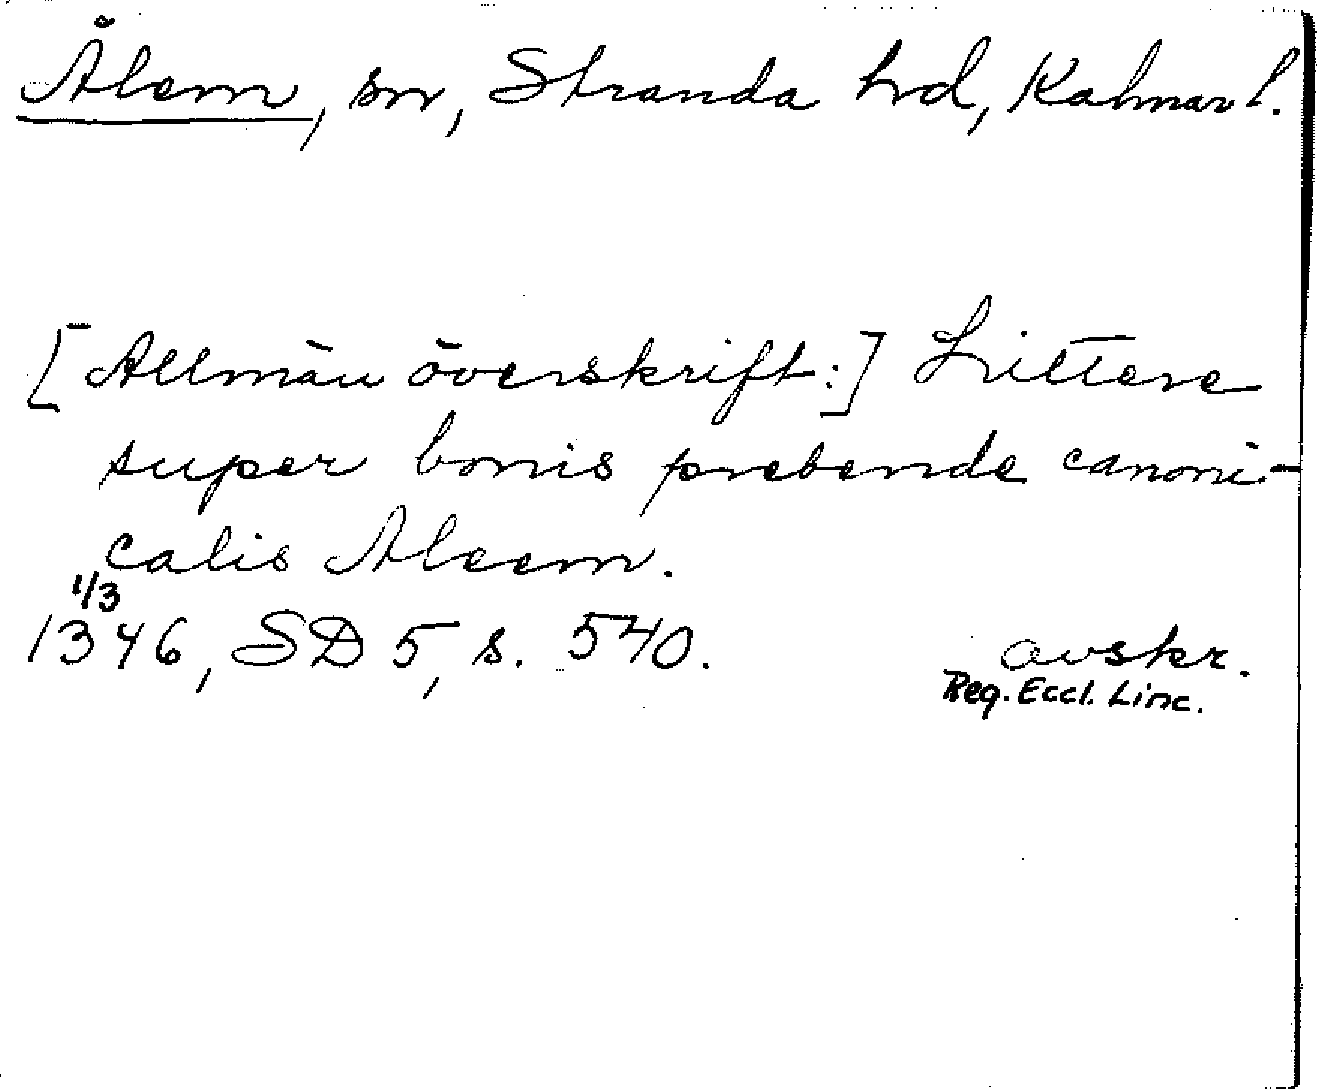 Ålem, sn, Stranda hd, Kalmar l.
[Allmän överskrift:] Littere
super bonis prebende canoni-
calis Aleem.
1/3
1346, SD 5, s. 540. avskr.
Reg. Eccl. Linc.